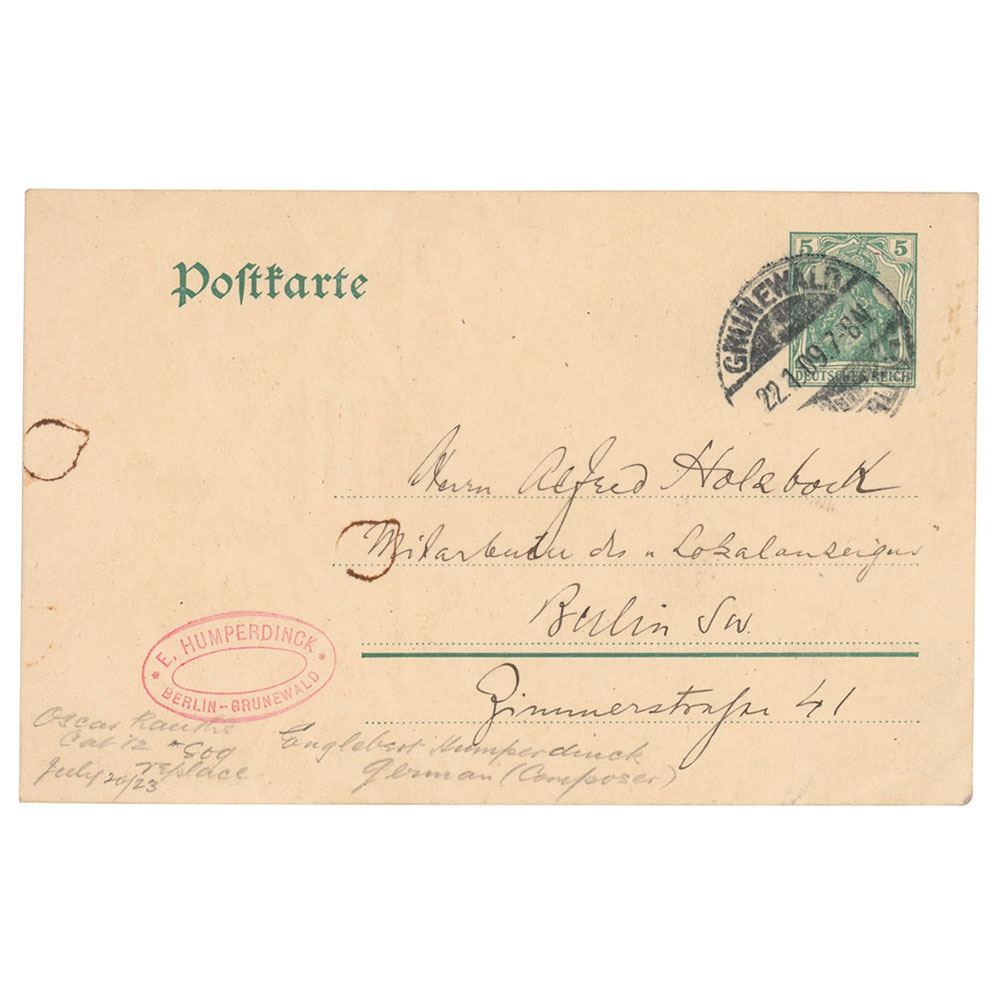 Postkarte
5 5
DEUTSCHES REICH
GRUNEWALD
22.1.09.7-8N
Herrn Alfred Holzbock
Mitarbeiter des "Lokalanzeiger"
Berlin SW.
Zimmerstraße 41
* E. HUMPERDINCK *
BERLIN-GRUNEWALD
Oscar
Cat 12
replace
July 20/23
Englebert Humperdinck
German (Composer)